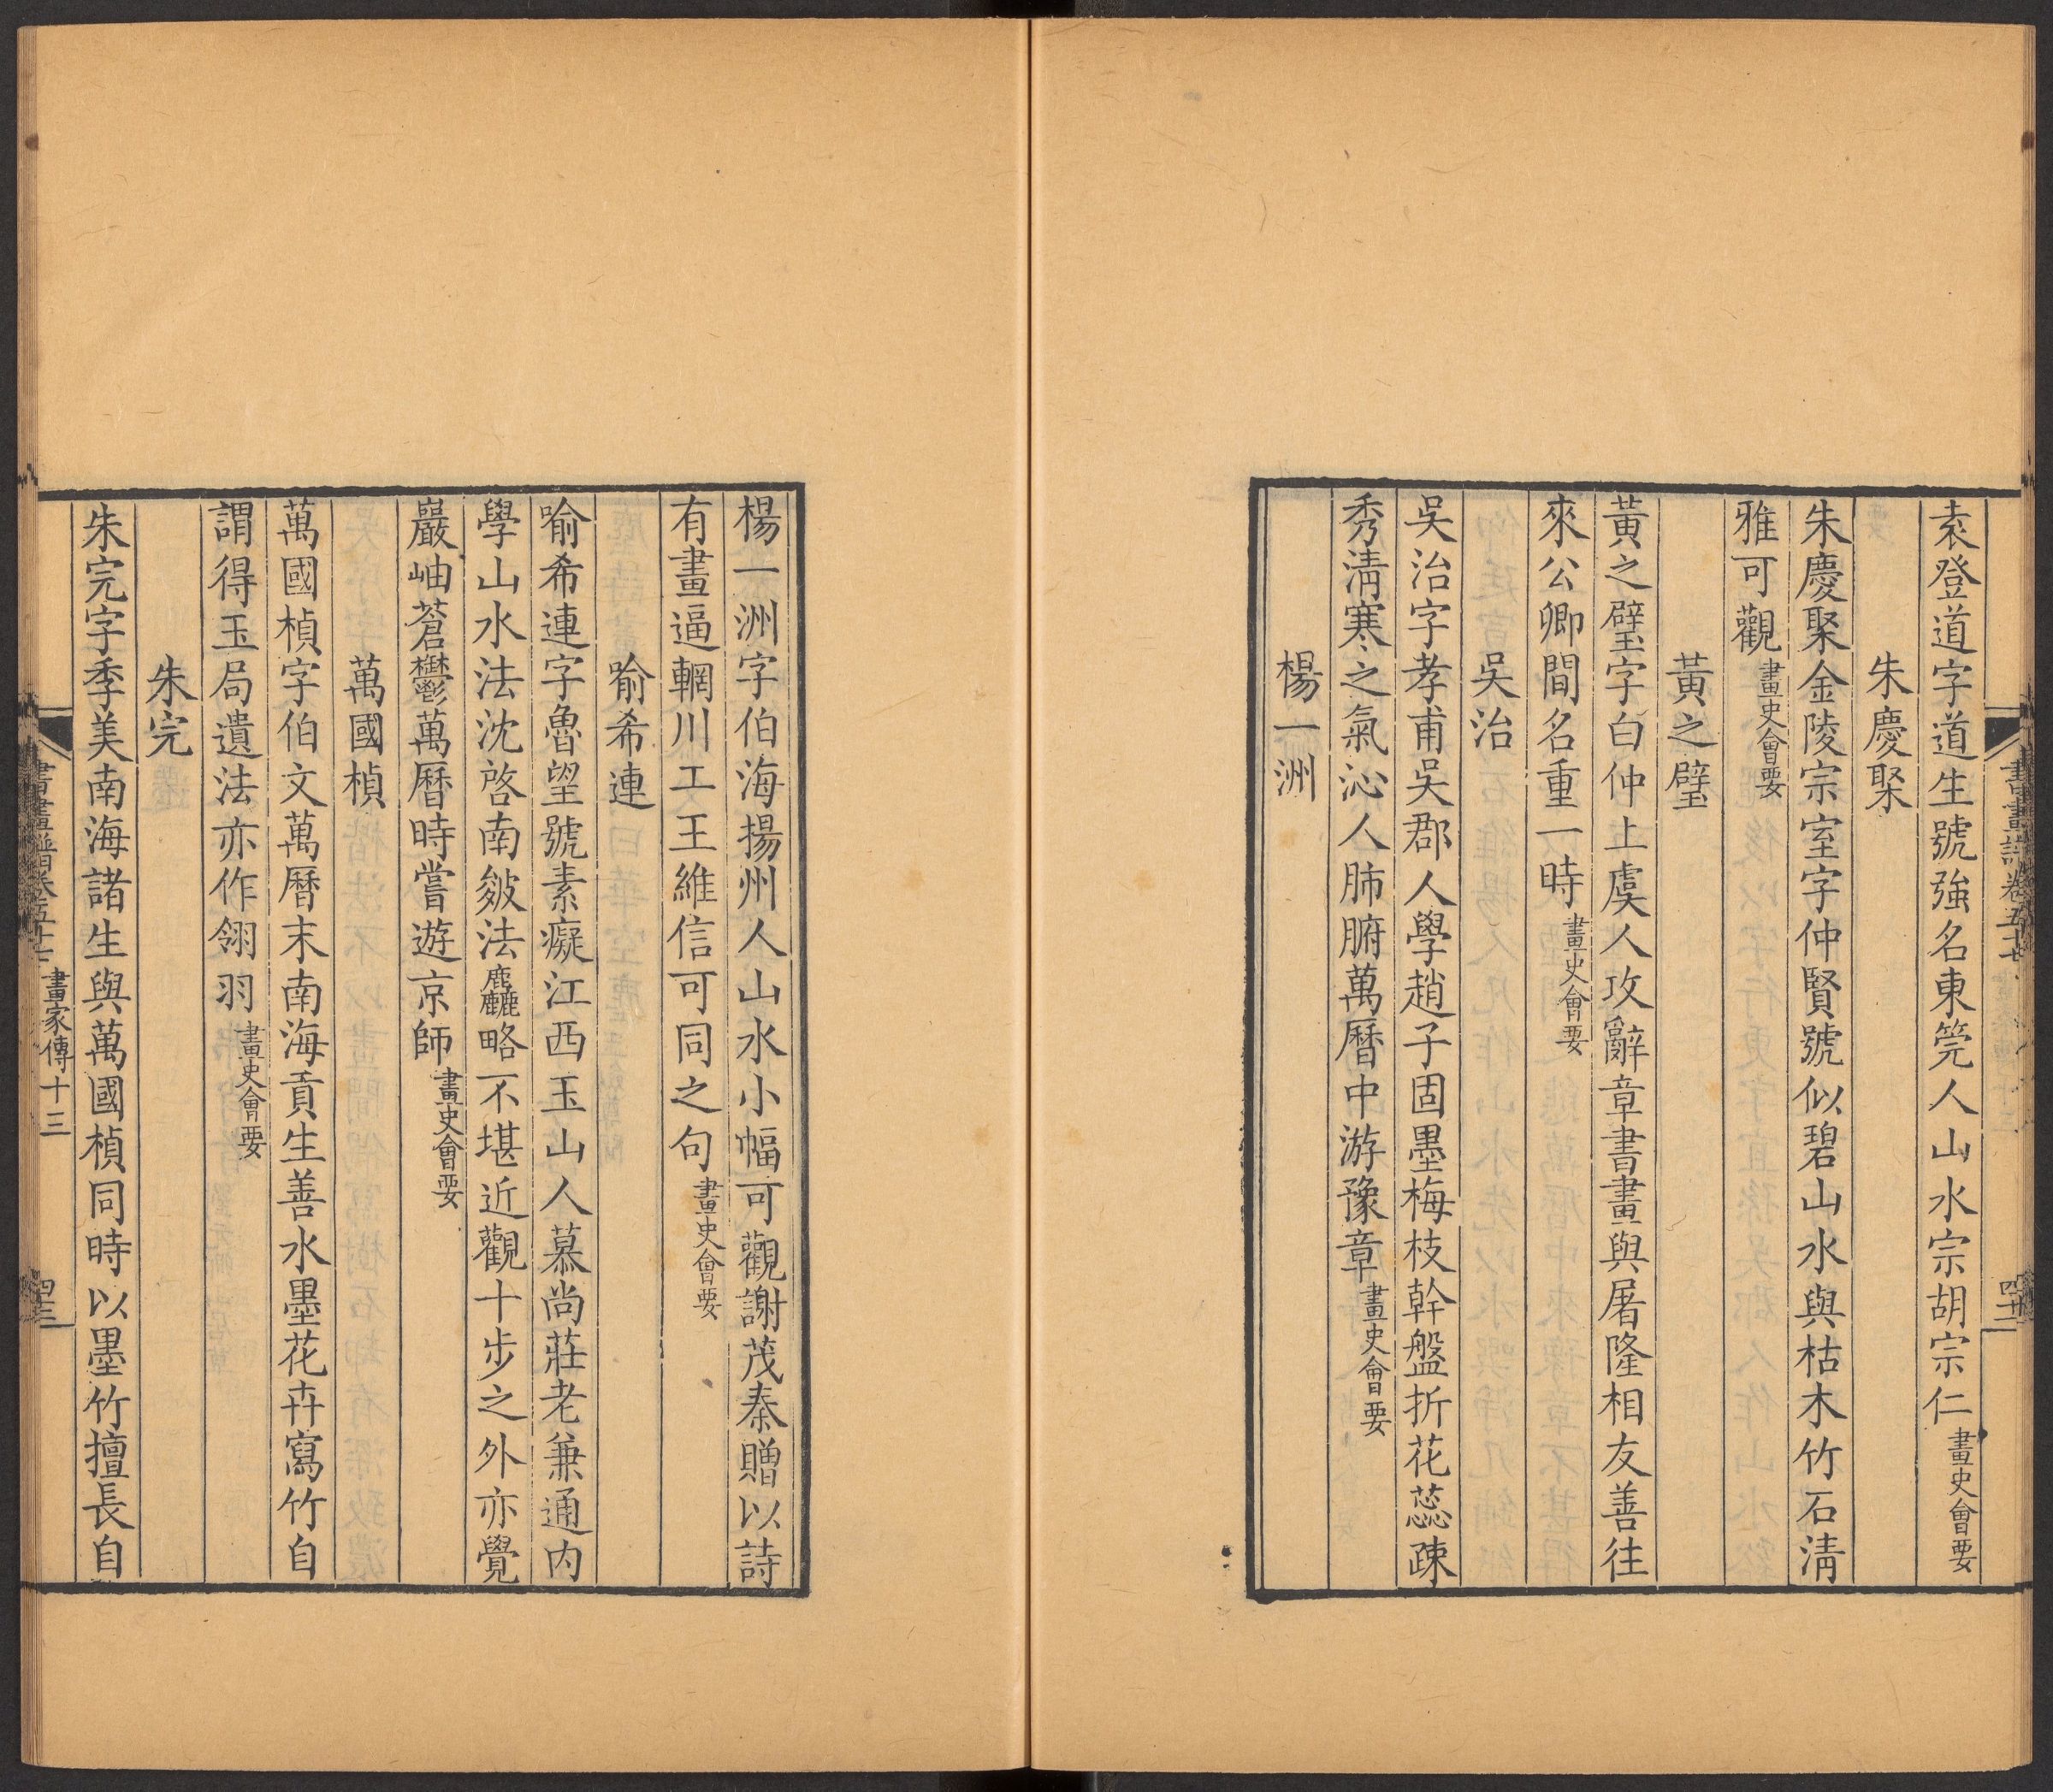 袁登道字道生號強名東筦人山水宗胡宗仁畫史會要
朱慶聚
朱慶聚金陵宗室字仲賢號似碧山水與枯木竹石清
雅可觀畫史會要
黃之璧
黃之璧字白仲上虞人攻辭章書畫與屠隆相友善往
來公卿間名重一時畫史會要
吳治
吳治字孝甫吳郡人學趙子固墨梅枝幹盤折花蕊疎
秀清寒之氣沁人肺腑萬曆中游豫章畫史會要
楊一洲
楊一洲字伯海揚州人山水小幅可觀謝茂秦贈以詩
有畫逼輞川工王維信可同之句畫史會要
喻希連
喻希連字魯望號素癡江西玉山人慕尚莊老兼通內
學山水法沈啓南皴法麤略不堪近觀十步之外亦覺
巖岫蒼欝萬曆時嘗遊京師畫史會要
萬國楨
萬國楨字伯文萬曆末南海貢生善水墨花卉寫竹自
謂得玉局遺法亦作翎羽畫史會要
朱完
朱完字季美南海諸生與萬國楨同時以墨竹擅長自
畫家傳十三